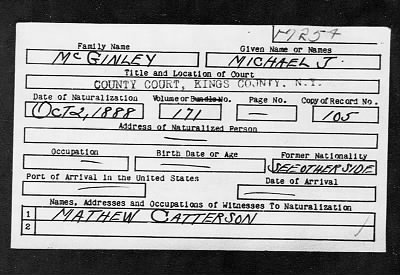 17254
Family Name Given Name or Names
McGINLEY MICHAEL J.
Title and Location of Court
COUNTY COURT, KINGS COUNTY. N.Y.
Date of Naturalization Volume or Bundle No. Page No. Copy of Record No.
Oct 2, 1888 171 — 105
Address of Naturalized Person
—
Occupation Birth Date or Age Former Nationality
— SEE OTHER SIDE
Port of Arrival in the United States Date of Arrival
— —
Names, Addresses and Occupations of Witnesses To Naturalization
1 MATHEW CATTERSON
2